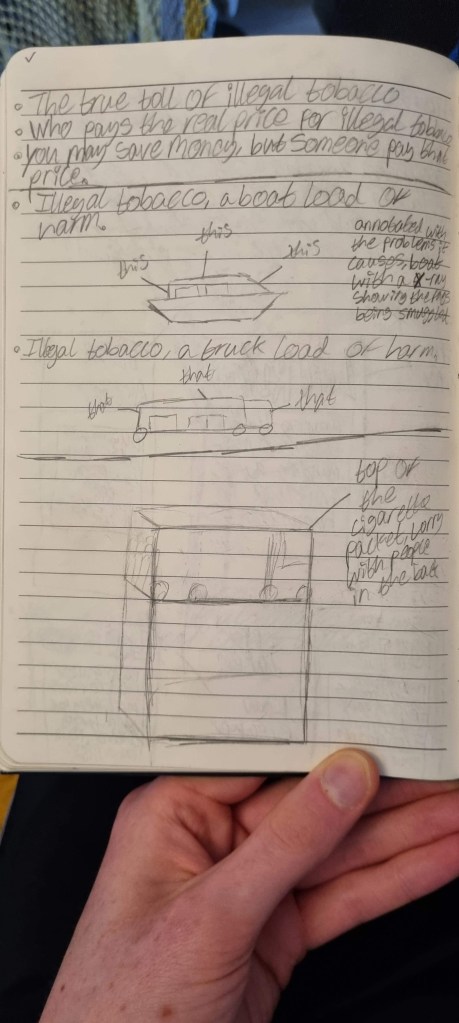 • The true toll of illegal tobacco
• Who pays the real price for illegal tobacco
• you may save money, but someone pay that
price.
• Illegal tobacco, a boat load of
harm.
this
this
this
annotated with
the problems it
causes, boat
with a X-ray
showing the
being smuggled
• Illegal tobacco, a truck load of harm.
that
that
that
top of
the
cigarette
packet, lorry
with people
in the back